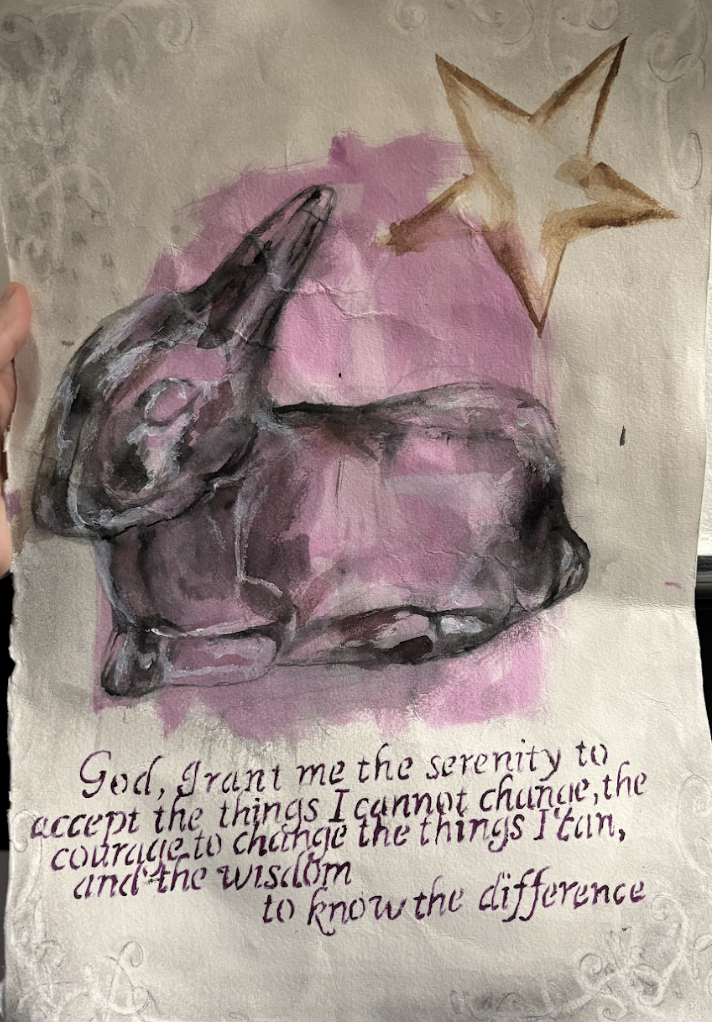 God, grant me the serenity to
accept the things I cannot change, the
courage to change the things I can,
and the wisdom
to know the difference